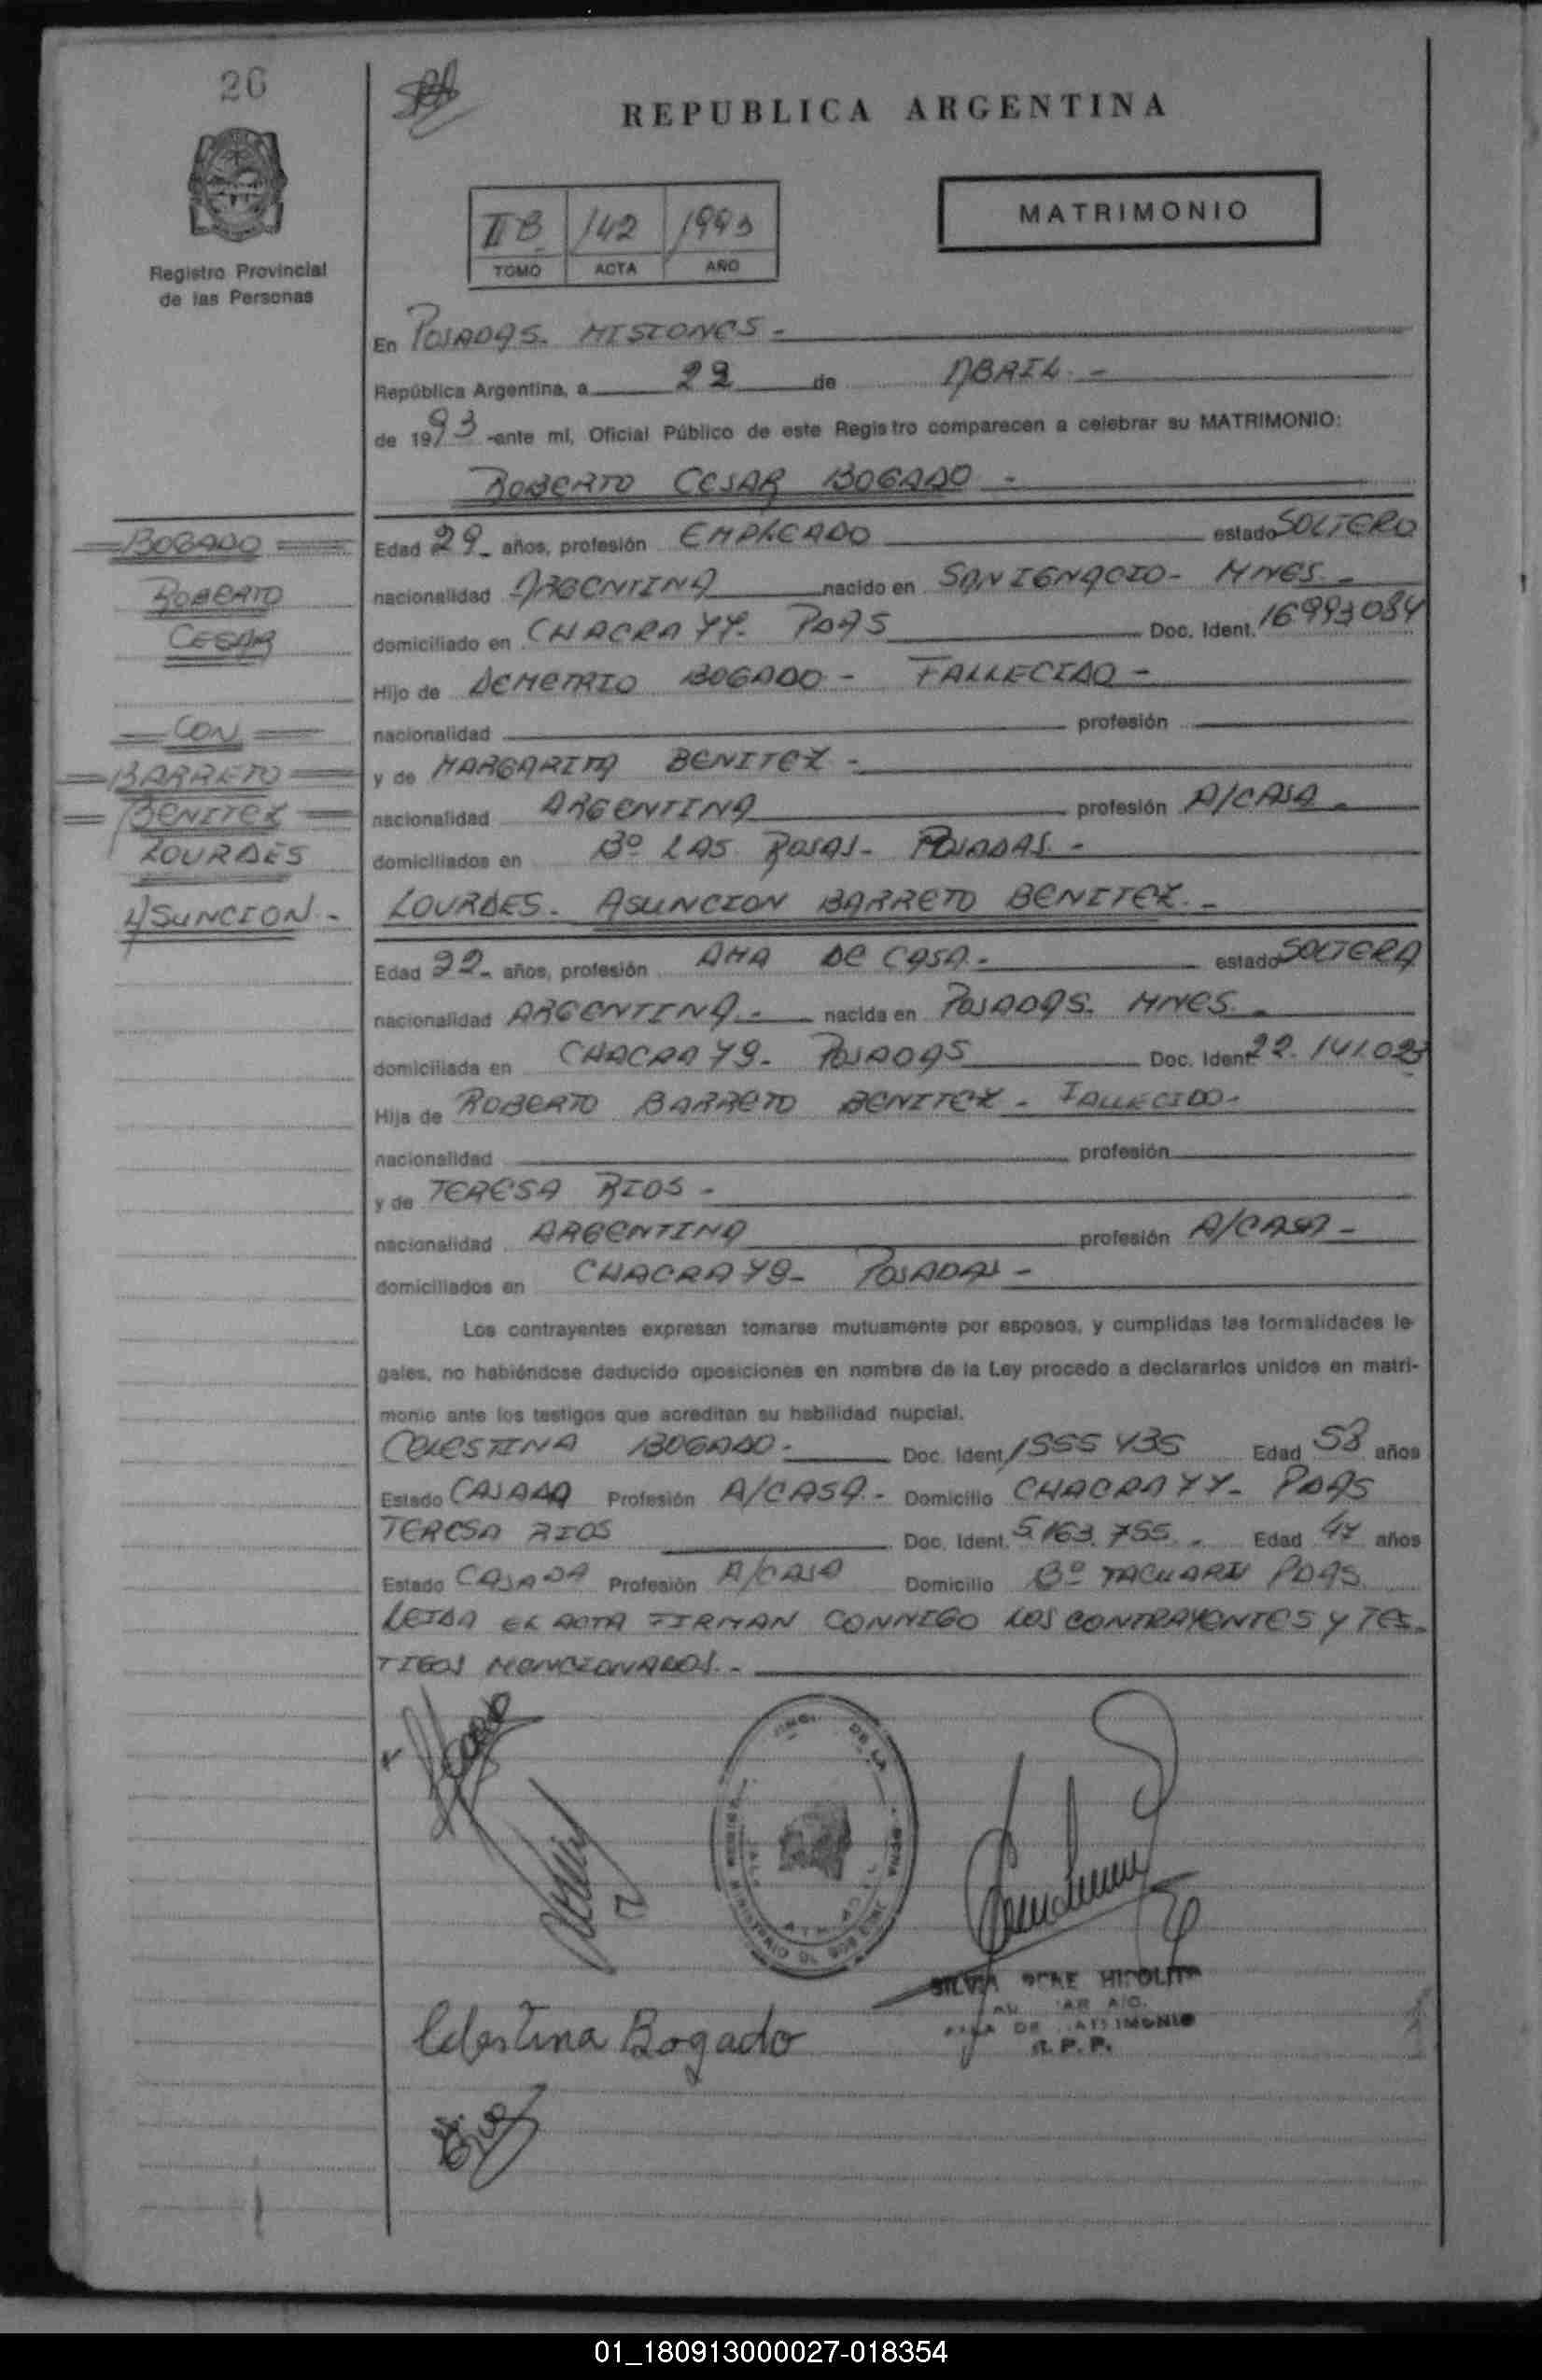 26
REPUBLICA ARGENTINA
II B 142 1993
TOMO ACTA AÑO
MATRIMONIO
Registro Provincial
de las Personas
En POSADAS. MISIONES-
República Argentina, a 22 de ABRIL.-
de 1993 -ante mí, Oficial Público de este Registro comparecen a celebrar su MATRIMONIO:
ROBERTO CESAR BOGADO -
BOGADO
ROBERTO
CESAR
CON
BARRETO
BENITEZ
LOURDES
ASUNCION.-
Edad 29- años, profesión EMPLEADO estado SOLTERO
nacionalidad ARGENTINA nacido en SAN IGNACIO- MNES.-
domiciliado en CHACRA 77- PDAS Doc. Ident. 16993084
Hijo de DEMETRIO BOGADO- FALLECIDO-
nacionalidad profesión
y de MARGARITA BENITEZ-
nacionalidad ARGENTINA profesión A/CASA-
domiciliados en Bº LAS ROSAS- POSADAS.-
LOURDES. ASUNCION BARRETO BENITEZ.-
Edad 22- años, profesión AMA DE CASA.- estado SOLTERA
nacionalidad ARGENTINA.- nacida en POSADAS. MNES.-
domiciliada en CHACRA 79- POSADAS Doc. Ident. 22.141.023
Hija de ROBERTO BARRETO BENITEZ- FALLECIDO-
nacionalidad profesión
y de TERESA RIOS-
nacionalidad ARGENTINA profesión A/CASA-
domiciliados en CHACRA 79- POSADAS-
Los contrayentes expresan tomarse mutuamente por esposos, y cumplidas las formalidades le-
gales, no habiéndose deducido oposiciones en nombre de la Ley procedo a declararlos unidos en matri-
monio ante los testigos que acreditan su habilidad nupcial.
CELESTINA BOGADO- Doc. Ident. 1555735 Edad 58 años
Estado CASADA Profesión A/CASA- Domicilio CHACRA 77- PDAS
TERESA RIOS Doc. Ident. 5.163.755.- Edad 47 años
Estado CASADA Profesión A/CASA Domicilio Bº TACUARI PDAS
LEIDA EL ACTA FIRMAN CONMIGO LOS CONTRAYENTES Y TES-
TIGOS MENCIONADOS.-
DE LA
SILVIA HIPOLITA
R.P.P.
Celestina Bogado
01_180913000027-018354